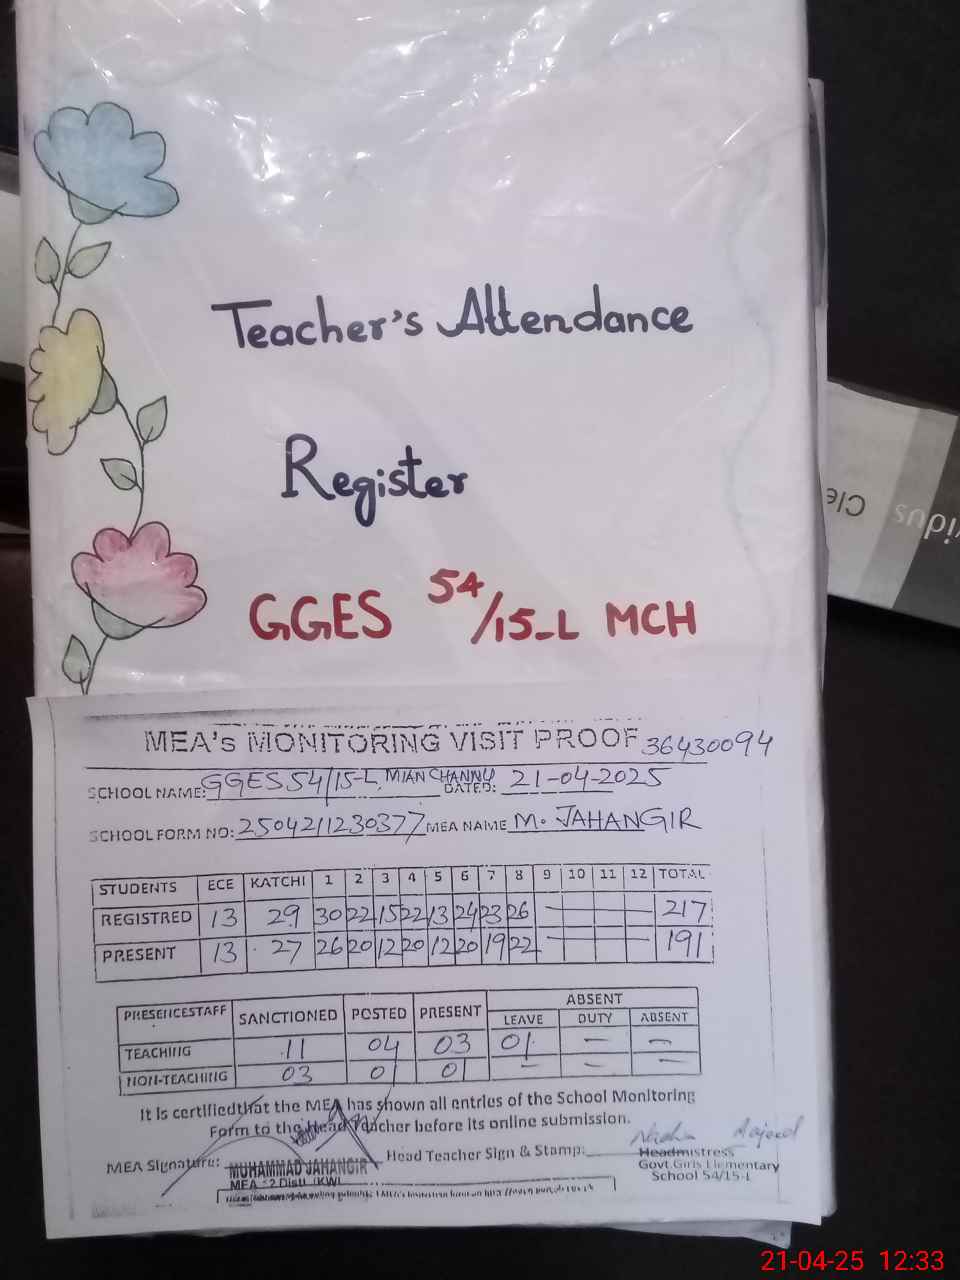 Teacher's Attendance
Register
GGES 54/15-L MCH
Cle
idus
MEA's MONITORING VISIT PROOF 36430094
SCHOOL NAME: GGES 54/15-L, MIAN CHANNU DATED: 21-04-2025
SCHOOL FORM NO: 2504211230377 MEA NAME M. JAHANGIR
STUDENTS ECE KATCHI 1 2 3 4 5 6 7 8 9 10 11 12 TOTAL
REGISTRED 13 29 30 22 15 22 13 24 23 26 217
PRESENT 13 27 26 20 12 20 12 20 19 22 191
PRESENCESTAFF SANCTIONED POSTED PRESENT ABSENT
LEAVE DUTY ABSENT
TEACHING 11 04 03 01 - -
NON-TEACHING 03 01 01 - - -
It is certifiedthat the MEA has shown all entries of the School Monitoring
Form to the Head Teacher before its online submission.
MEA Signature: Head Teacher Sign & Stamp:
MUHAMMAD JAHANGIR
Headmistress
Govt.Girls Elementary
School 54/15-L
21-04-25 12:33